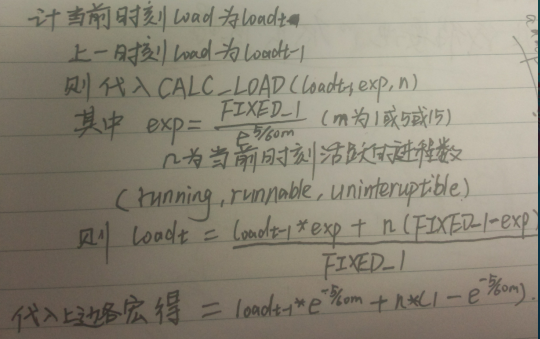 计当前时刻load为loadt
上一时刻load为loadt-1
则代入CALC_LOAD(loadt-1,exp,n)
其中 exp= FIXED_1 / e^5/60m (m为1或5或15)
n为当前时刻活跃的进程数
(running, runnable, uninteruptible)
则 loadt = loadt-1*exp + n(FIXED_1-exp) / FIXED_1
代入上边各宏得 = loadt-1*e^-5/60m + n*(1-e^-5/60m).